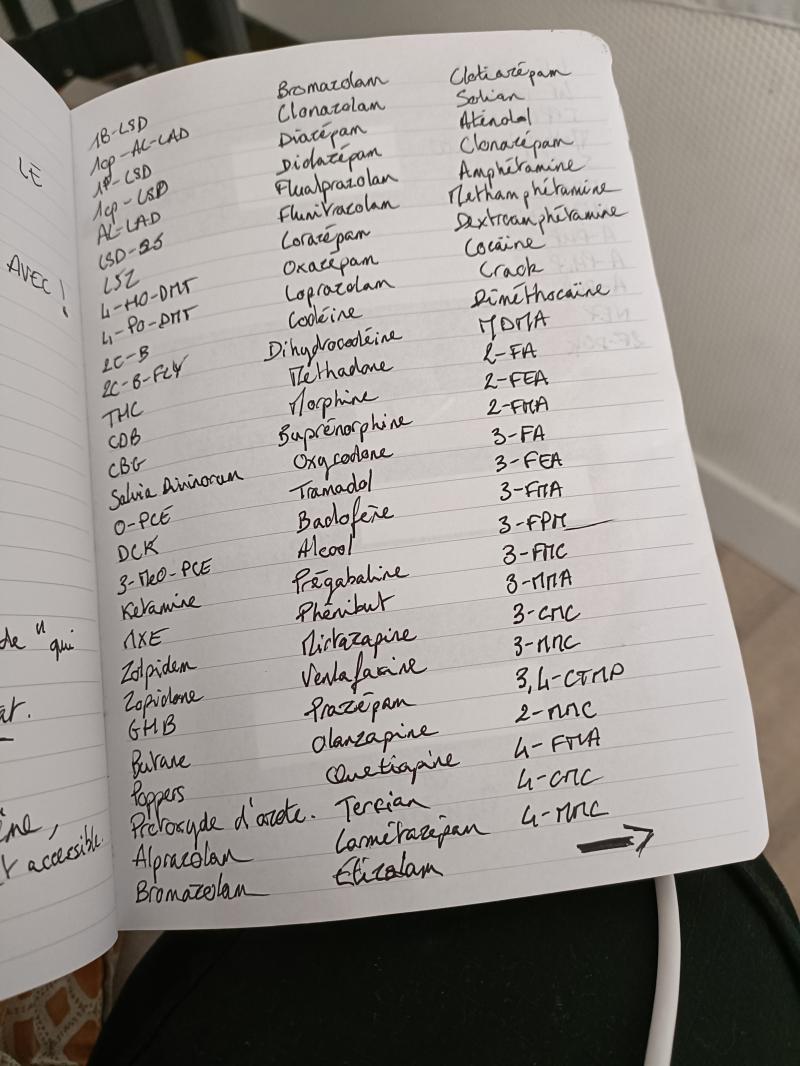 LE
AVEC !
de " qui
accessible.
1B-LSD
1cp-AL-LAD
1P-LSD
1cp-LSD
AL-LAD
LSD-25
LSZ
4-HO-DMT
4-PO-DMT
2C-B
2C-B-FLY
THC
CDB
CBG
Salvia Divinorum
O-PCE
DCK
3-MeO-PCE
Ketamine
MXE
Zolpidem
Zopidone
GHB
Butane
Poppers
Protoxyde d'azote.
Alprazolam
Bromazolam
Bromazolam
Clonazolam
Diazépam
Diclazépam
Flualprazolam
Flunitrazolam
Lorazépam
Oxazépam
Loprazolam
Codéine
Dihydrocodéine
Méthadone
Morphine
Buprénorphine
Oxycodone
Tramadol
Baclofène
Alcool
Prégabaline
Phénibut
Mirtazapine
Venlafaxine
Prazépam
Olanzapine
Quetiapine
Tercian
Lormétazépam
Etizolam
Clotiazépam
Solian
Aténolol
Clonazépam
Amphétamine
Methamphétamine
Dextroamphétamine
Cocaïne
Crack
Diméthocaïne
MDMA
2-FA
2-FEA
2-FMA
3-FA
3-FEA
3-FMA
3-FPM
3-FMC
3-MMA
3-CMC
3-MMC
3,4-CTMP
2-MMC
4-FMA
4-CMC
4-MMC